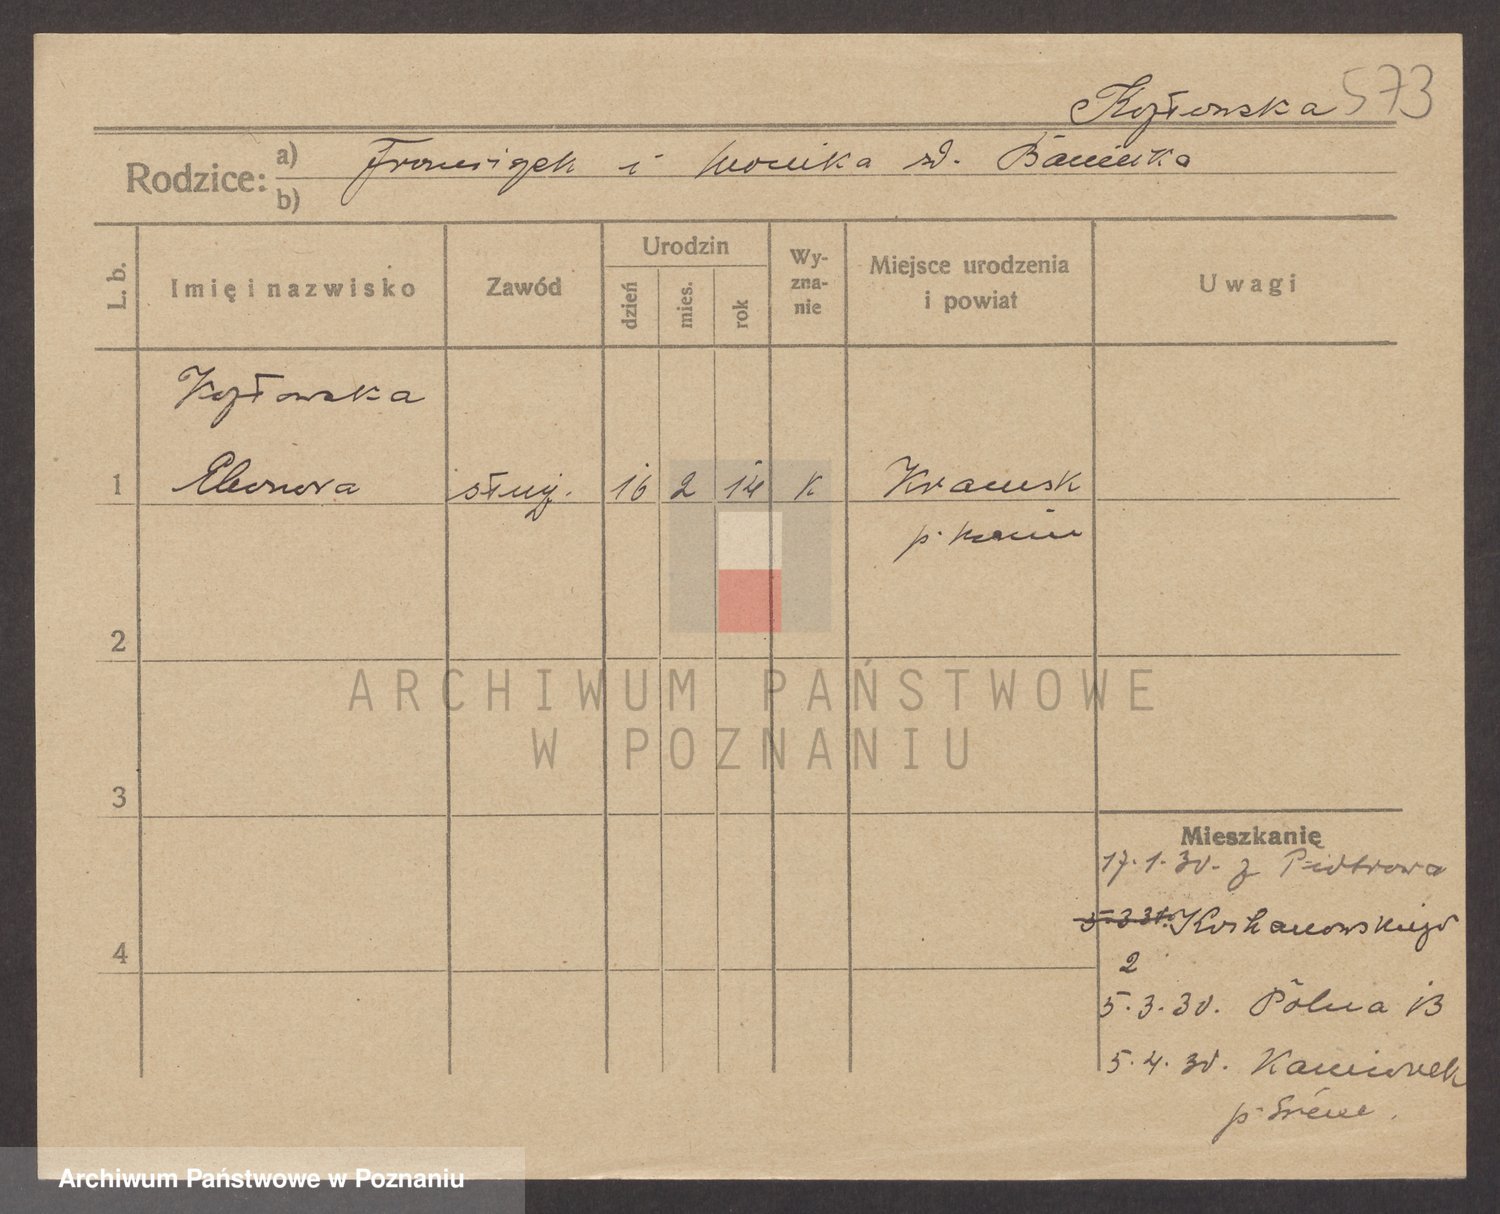 Kozłowska 573
Rodzice: a) Franciszek i Monika zd.
b)
L. b. Imię i nazwisko Zawód Urodzin dzień mies. rok Wy-zna-nie Miejsce urodzenia i powiat Uwagi
Kozłowska
1 Eleonora służ. 16 2 14 k Kramsk
p. Konin
2
3
4
Mieszkanie
17.1.30. z Piotrowa
5.3.30. Kochanowskiego
2
5.3.30. Polna 13
5.4.30. Kamionek
p. Śrem.
ARCHIWUM PAŃSTWOWE
W POZNANIU
Archiwum Państwowe w Poznaniu